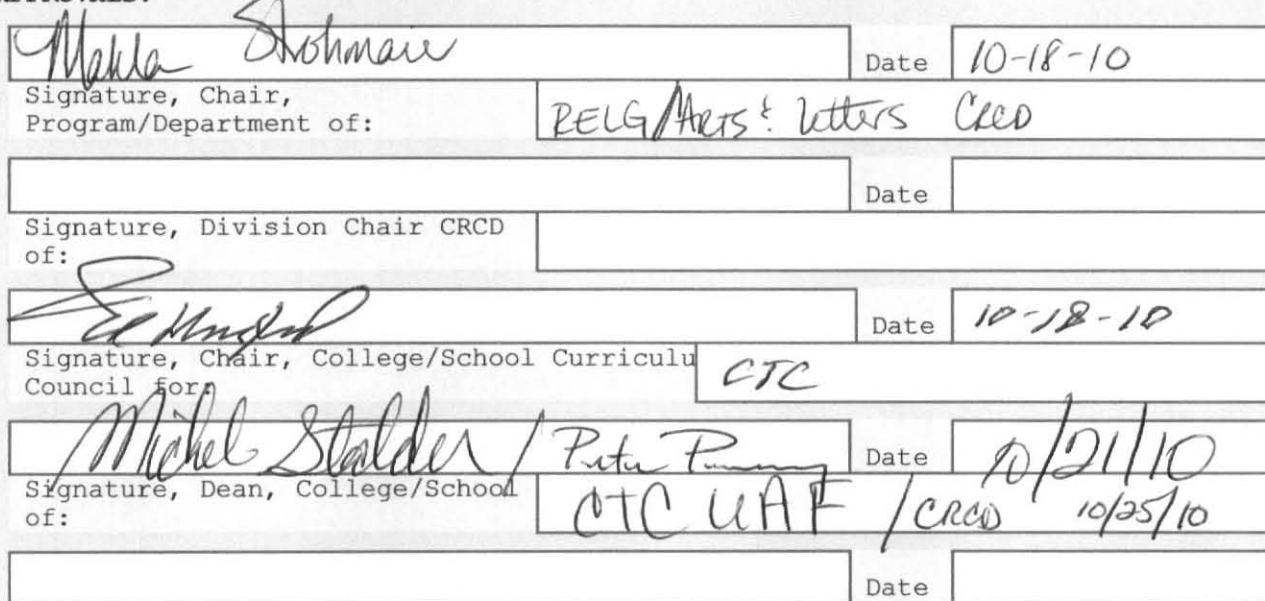 Mahla Strohmaier Date 10-18-10
Signature, Chair,
Program/Department of: RELG/ARTS & Letters CRCD
Date
Signature, Division Chair CRCD
of:
Date 10-18-10
Signature, Chair, College/School Curriculu
Council for: CTC
Michel Stalder / Pete Date 10/21/10
Signature, Dean, College/School
of: CTC UAF / CRCD 10/25/10
Date